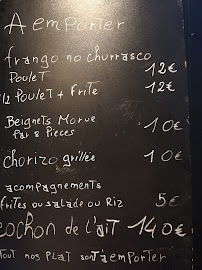 A emporter
frango no churrasco
Poulet 12€
1/2 Poulet + frite 12€
Beignets Morue 10€
Par 8 Pieces
chorizo grillée 10€
acompagnements
frites ou salade ou Riz 5€
cochon de l'aiT 140€
Tout nos PLAT sont a emporter